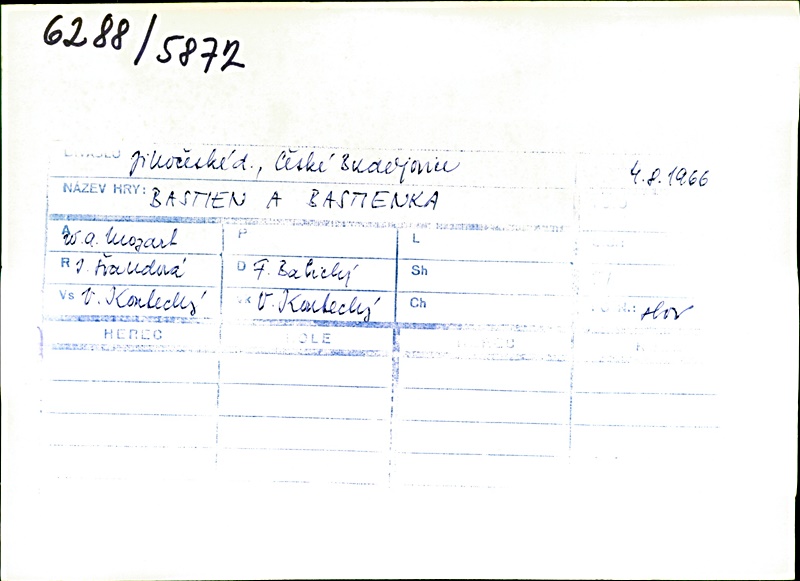 6288/5872
DIVADLO Jihočeské d., České Budějovice
4.8.1966
NÁZEV HRY: BASTIEN A BASTIENKA
A W. A. Mozart P L
R D F. Babický Sh
Vs V. Koubecký V. Koubecký Ch
HEREC ROLE HEREC